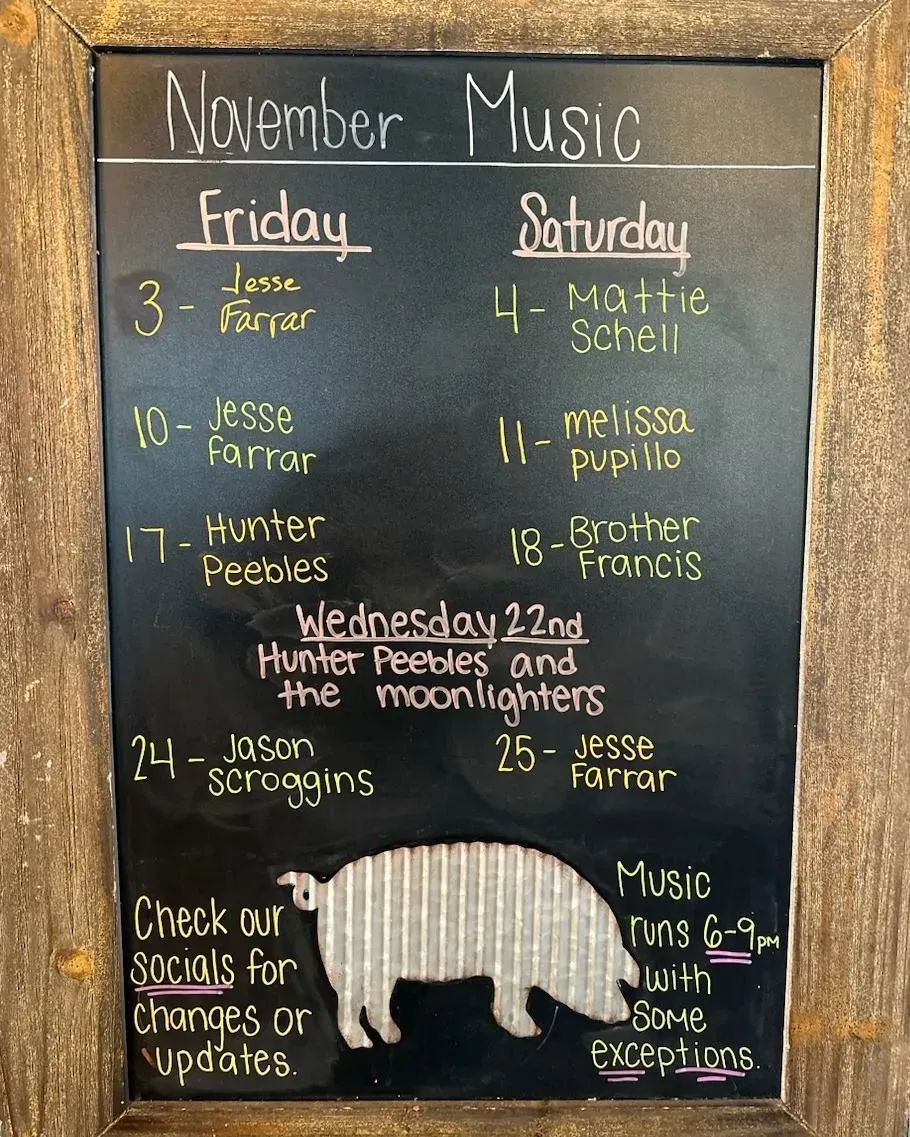 November Music
Friday
3 - Jesse
Farrar
10 - Jesse
Farrar
17 - Hunter
Peebles
Saturday
4 - Mattie
Schell
11 - melissa
pupillo
18 - Brother
Francis
Wednesday 22nd
Hunter Peebles and
the moonlighters
24 - Jason
Scroggins
25 - Jesse
Farrar
Check our
socials for
changes or
updates.
Music
runs 6-9pm
with
some
exceptions.